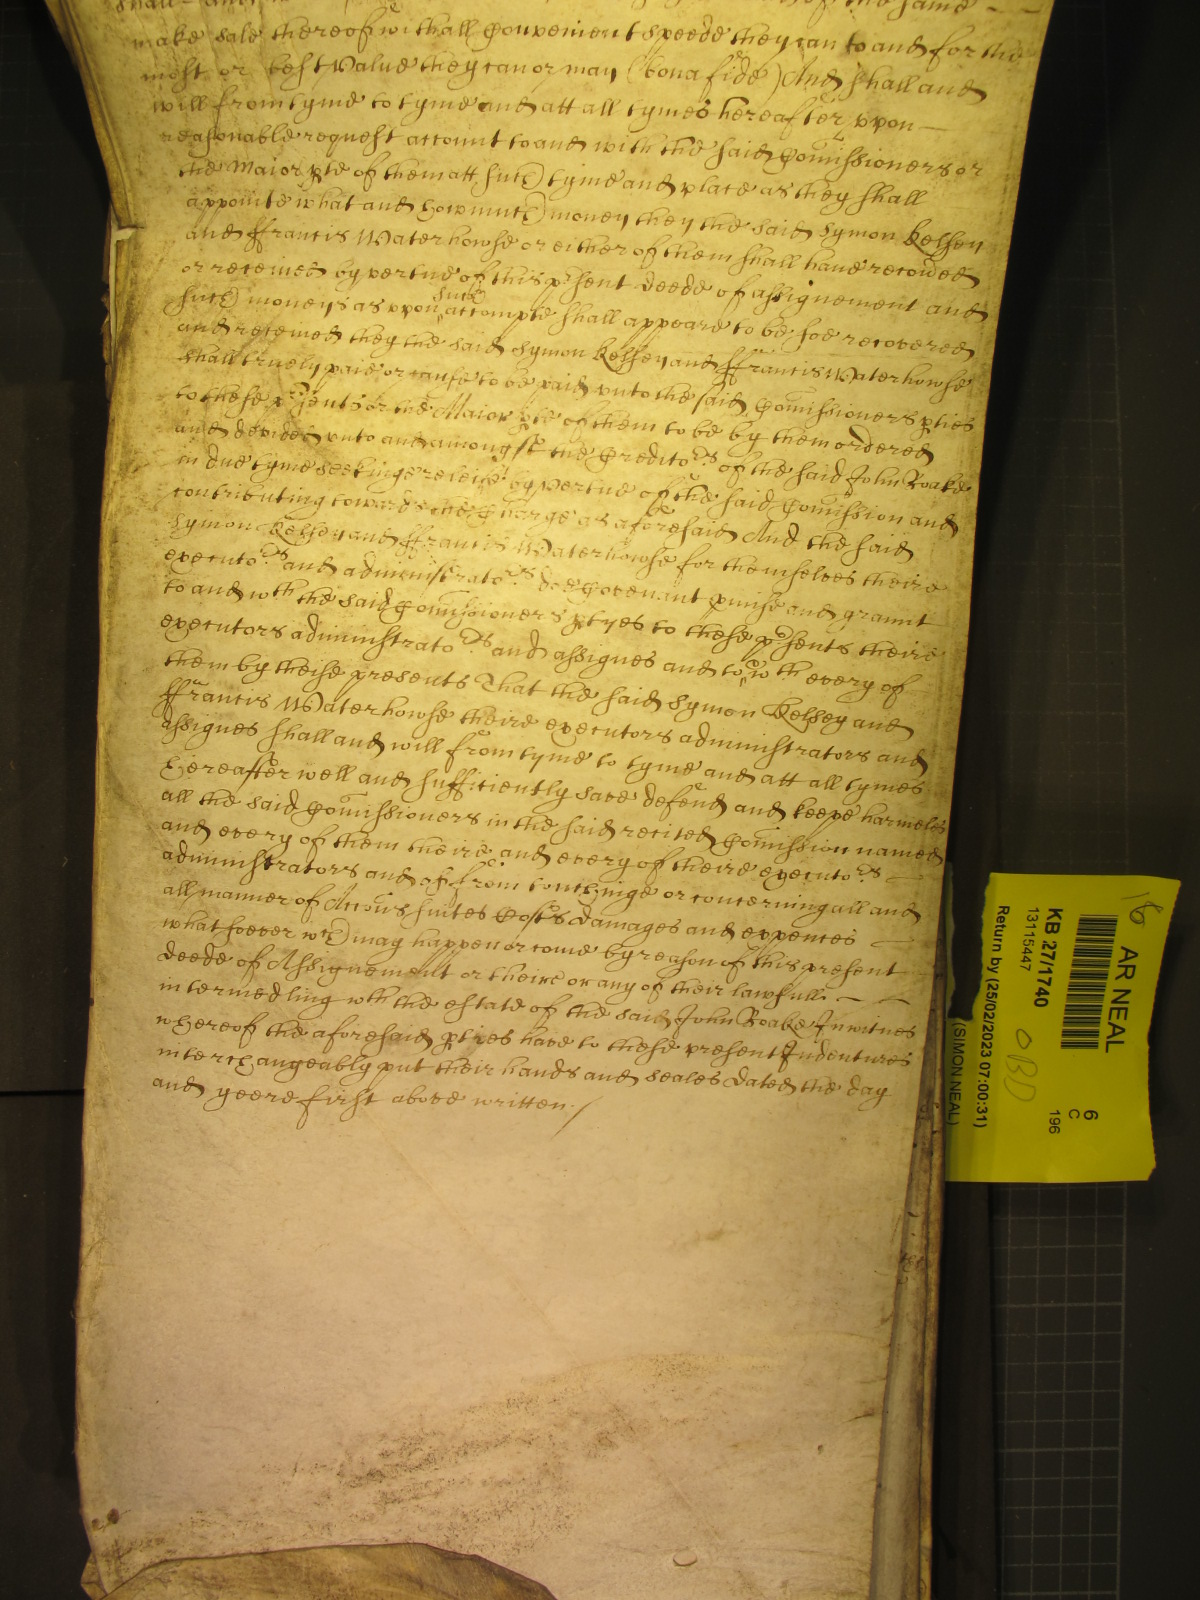 shall and of the same - -
make sale thereof with all Convenient speede they can to and for the
most or best value they can or may (bona fide) And shall and
will from tyme to tyme and att all tymes hereafter vpon
reasonable request account to and with the said Comissioners or
the Maior pte of them att such tyme and place as they shall
appointe what and how much money they the said Symon Kelsey
and ffrancis Waterhowse or either of them shall haue recoued
or receiued by vertue of this pesent deede of assignement and
such moneys as vpon such accompte shall appeare to be soe recovered
and receiued they the said Symon Kelsey and ffrancis Waterhowse
shall truely paie or cause to be paid vnto the said Comissioners pties
to these pesents or the Maior pte of them to be by them ordered
and devided vnto and amongst the Creditors of the said John Boake
in due tyme seekinge releife by vertue of the said Comission and
contributing towards the Charge as aforesaid And the said
Symon Kelsey and ffrancis Waterhowse for themselves theire
executors and administrators doe Covenant pmise and graunt
to and wth the said Comissioners ptyes to these pesents theire
executors administrators and assignes and to & wth every of
them by theise presents That the said Symon Kelsey and
ffrancis Waterhowse theire executors administrators and
assignes shall and will from tyme to tyme and att all tymes
hereafter well and sufficiently save defend and keepe harmeles
all the said Comissioners in the said recited Comission named
and every of them theire and every of theire executors
administrators and of & from touchinge or concerning all and
all manner of Accons suites Costs damages and expences
whatsoever wch may happen or come by reason of this present
deede of Assignement or theire or any of their lawfull - -
intermedling wth the estate of the said John Boake In witnes
whereof the aforesaid pties have to these present Indentures
interchangeably put their hands and seales dated the day
and yeere first above written
18
AR NEAL
KB 27/1740
13115447
OBD
6
C
196
Return by (25/02/2023 07:00:31)
(SIMON NEAL)